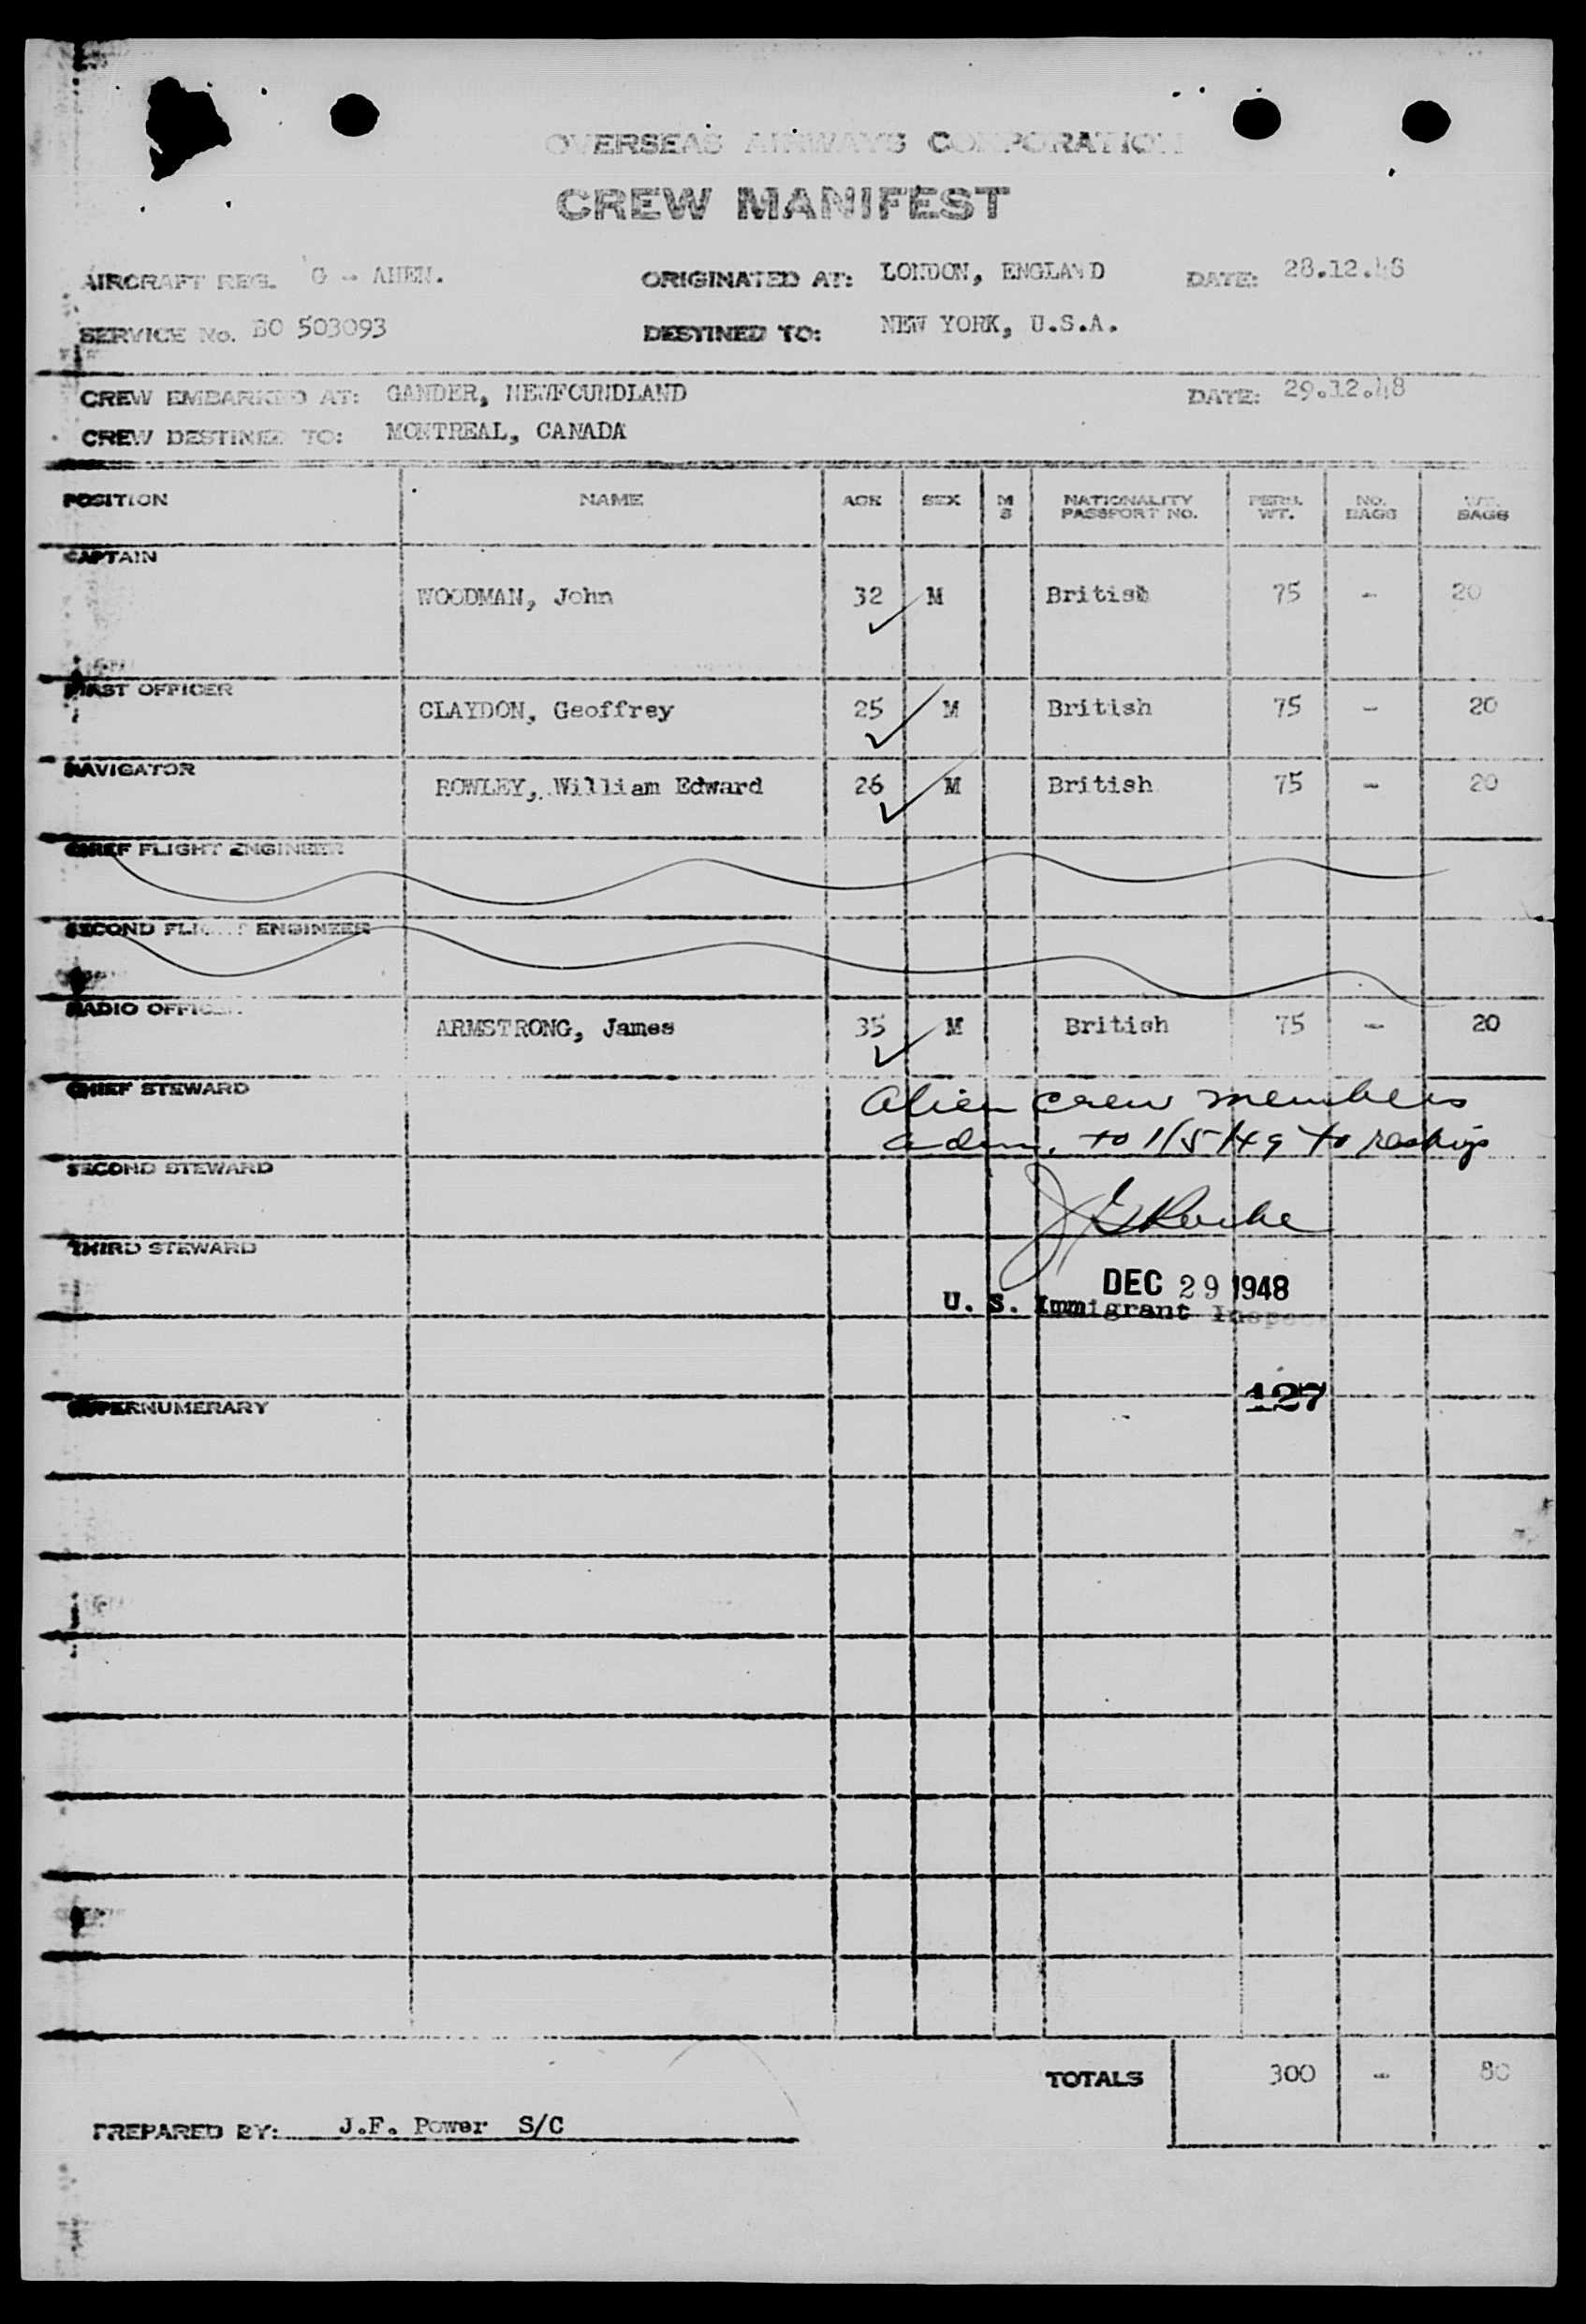 OVERSEAS AIRWAYS CORPORATION
CREW MANIFEST
AIRCRAFT REG. G - AHEN. ORIGINATED AT: LONDON, ENGLAND DATE: 28.12.48
SERVICE No. BO 503093 DESTINED TO: NEW YORK, U.S.A.
CREW EMBARKED AT: GANDER, NEWFOUNDLAND DATE: 29.12.48
CREW DESTINED TO: MONTREAL, CANADA
POSITION NAME AGE SEX M S NATIONALITY PASSPORT NO. PERS. WT. NO. BAGS WT. BAGS
CAPTAIN
WOODMAN, John 32 M British 75 - 20
FIRST OFFICER
CLAYDON, Geoffrey 25 M British 75 - 20
NAVIGATOR
ROWLEY, William Edward 26 M British 75 - 20
CHIEF FLIGHT ENGINEER
SECOND FLIGHT ENGINEER
RADIO OFFICER
ARMSTRONG, James 35 M British 75 - 20
CHIEF STEWARD
Alien crew members
adm. to 1/5/49 to reship
SECOND STEWARD
THIRD STEWARD
DEC 29 1948
U. S. Immigrant Inspector
127
SUPERNUMERARY
TOTALS 300 - 80
PREPARED BY: J.F. Power S/C